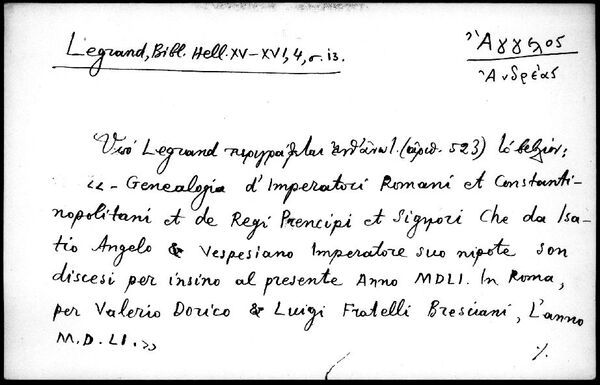 Legrand, Bibl. Hell. XV-XVI, 4, σ. 13.
Ἄγγελος
Ἀνδρέας
Ὑπό Legrand περιγράφεται ἐνθ' ἄνω (ἀριθ. 523) τό βιβλίον:
«-Genealogia d'Imperatori Romani et Constanti-
nopolitani et de Regi Prencipi et Signori Che da Isa-
tio Angelo & Vespesiano Imperatore suo nipote son
discesi per insino al presente Anno MDLI. In Roma,
per Valerio Dorico & Luigi Fratelli Bresciani, L'anno
M.D.LI.»
%.